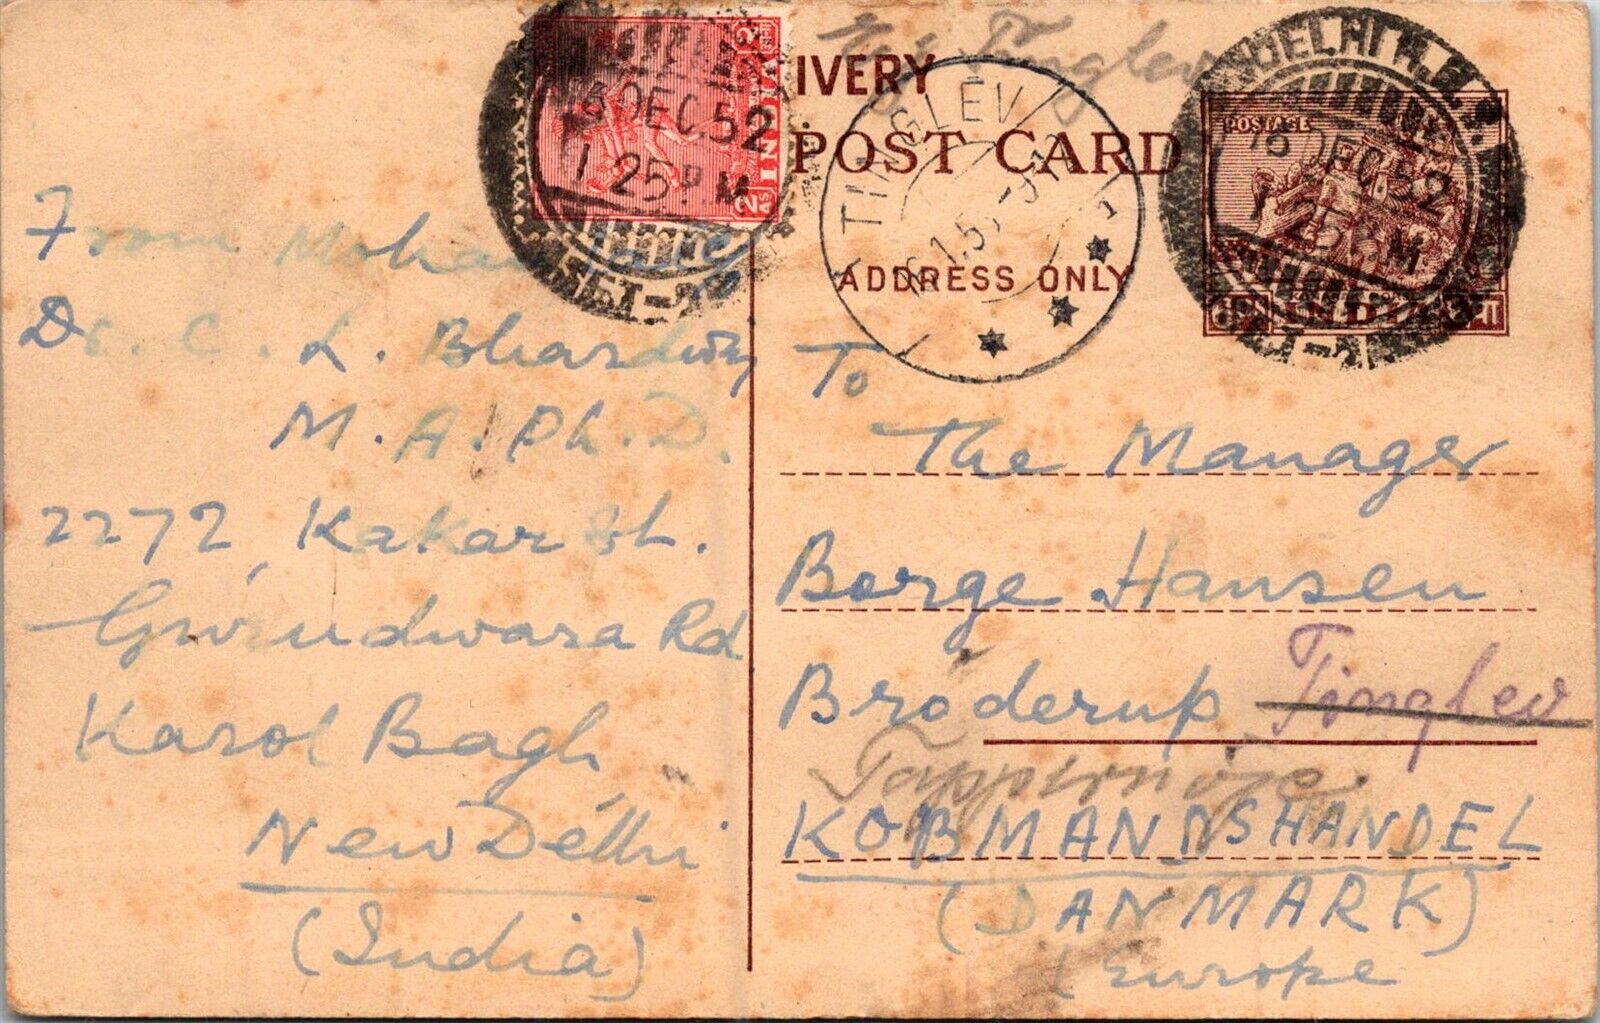 IVERY
POST CARD
ADDRESS ONLY
POSTAGE
INDIA
2 AS INDIA 2
6 DEC 52
1 25 P M
NDELHI
16 DEC 52
1 25 P M
TINGLEV
Tinglev
From Mohan
Dr. C. L. Bhardwaj
M. A. Ph. D.
2272 Kakar St.
Gurudwara Rd
Karol Bagh
New Delhi
(India)
To
The Manager
Borge Hansen
Broderup Tinglev
KOBMANDSHANDEL
(DANMARK)
(Europe